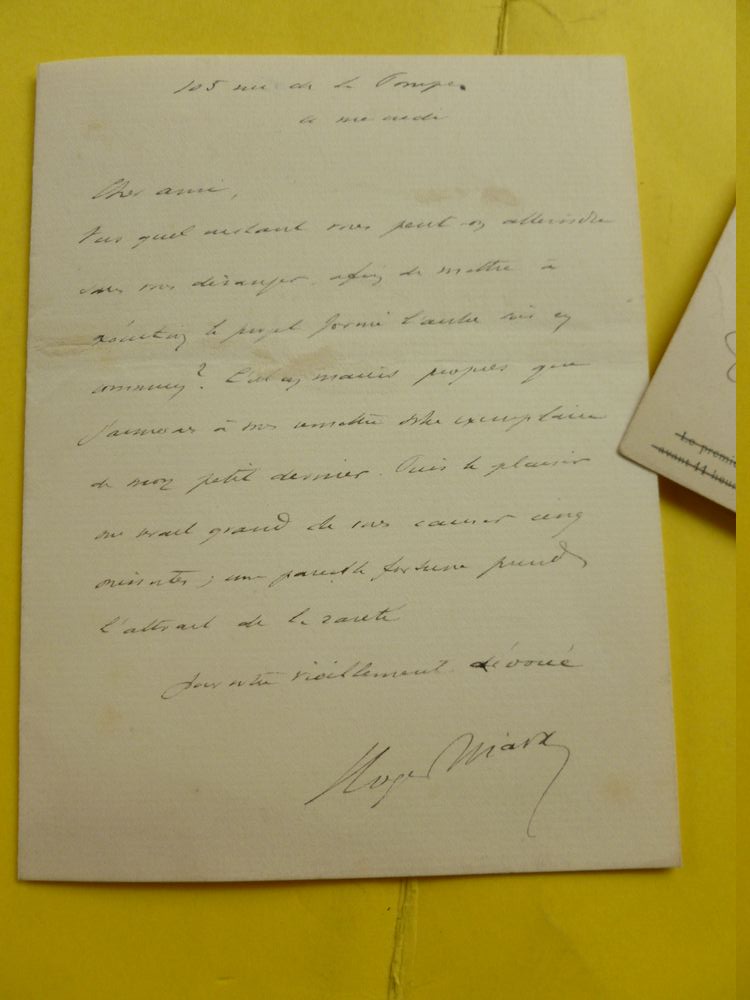 105 rue de la Pompe.
ce mercredi
Cher ami,
quel instant vous peut on atteindre
sans vous déranger, afin de mettre à
exécution le projet formé l'autre soir en
commun? C'est en mains propres que
j'aimerais à vous remettre votre exemplaire
de mon petit dernier. Puis le plaisir
me serait grand de vous causer cinq
minutes ; une pareille fortune prend
l'attrait de la rareté
votre vieillement dévoué
Roger Marx
Le premie
avant 11 heur